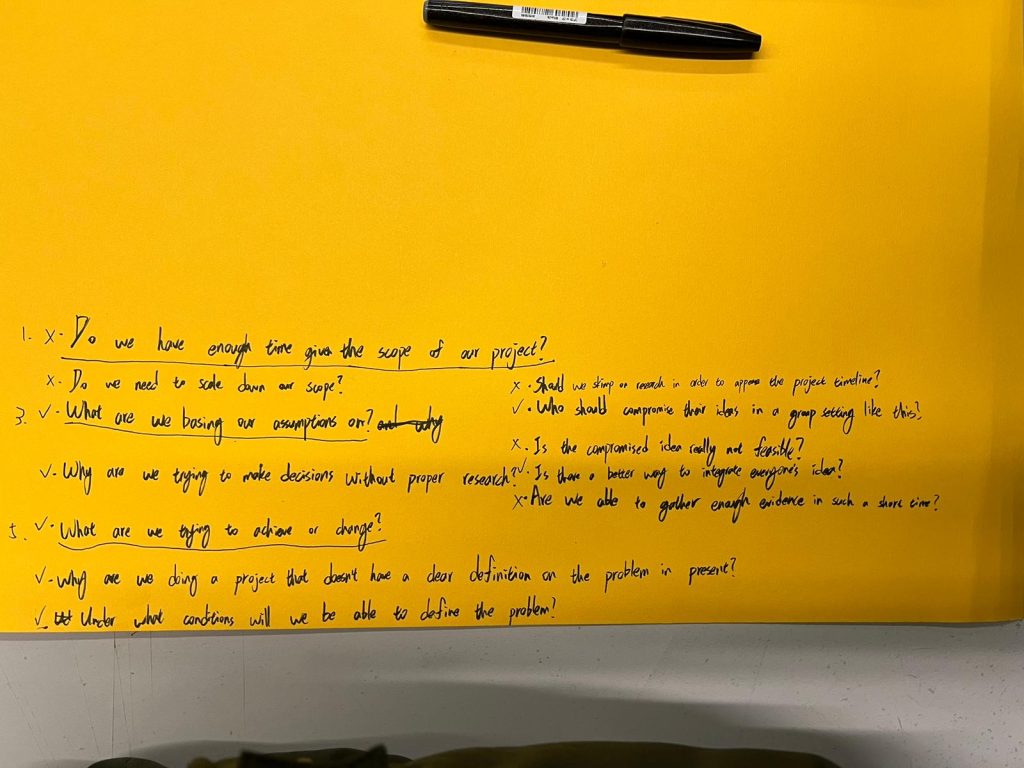 1. x - Do we have enough time given the scope of our project?
x - Do we need to scale down our scope?
3. ✓ - What are we basing our assumptions on? and why
✓ - Why are we trying to make decisions without proper research?
5. ✓ - What are we trying to achieve or change?
✓ - Why are we doing a project that doesn't have a clear definition on the problem in present?
✓ - Under what conditions will we be able to define the problem?
x - Should we skimp on research in order to the project timeline?
✓ - Who should compromise their ideas in a group setting like this?
x - Is the compromised idea really not feasible?
✓ - Is there a better way to integrate everyone's idea?
x - Are we able to gather enough evidence in such a short time?